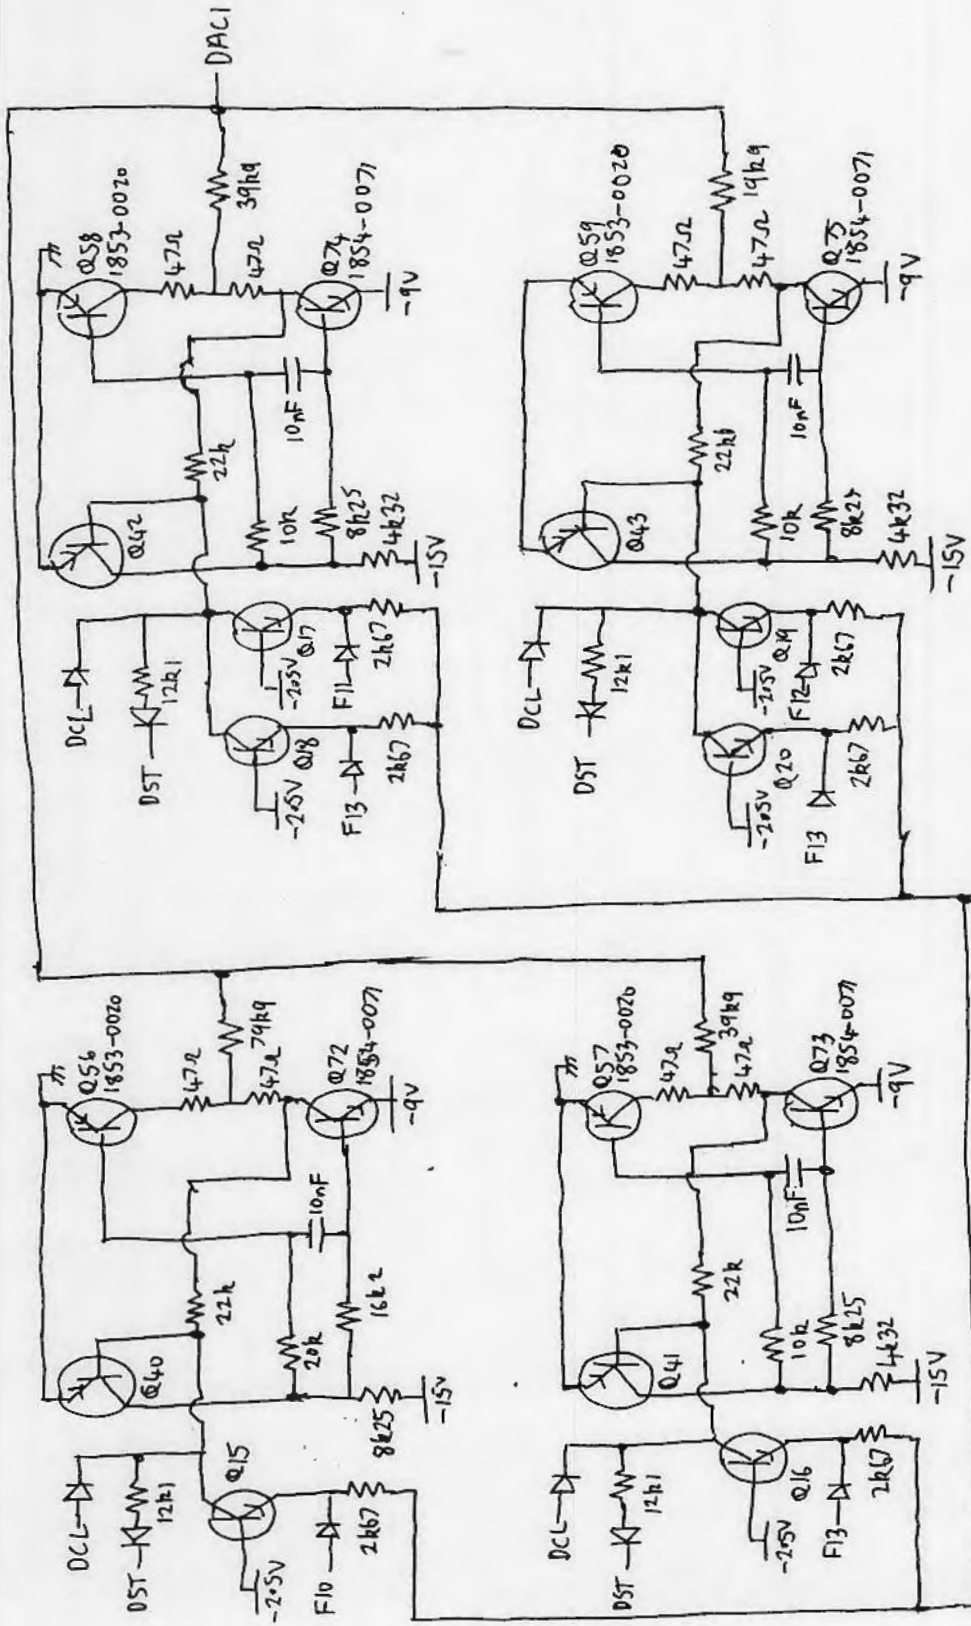 DAC1
Q58
1853-0020
47Ω
39k9
47Ω
Q74
1854-0071
-9V
10nF
22k
Q42
10k
8k25
4k32
-15V
DCL
DST
12k1
Q17
-2.5V
F11
2k67
Q18
-2.5V
F13
2k67
Q59
1853-0020
47Ω
19k9
47Ω
Q75
1854-0071
-9V
10nF
22k6
Q43
10k
8k25
4k32
-15V
DCL
DST
12k1
Q19
-2.5V
F12
2k67
Q20
-2.5V
F13
2k67
Q56
1853-0020
47Ω
79k9
47Ω
Q72
1854-0071
-9V
10nF
22k
Q40
20k
16k2
8k25
-15V
DCL
DST
12k1
Q15
-2.5V
F10
2k67
Q57
1853-0020
47Ω
39k9
47Ω
Q73
1854-0071
-9V
10nF
22k
Q41
10k
8k25
4k32
-15V
DCL
DST
12k1
Q16
-2.5V
F13
2k67